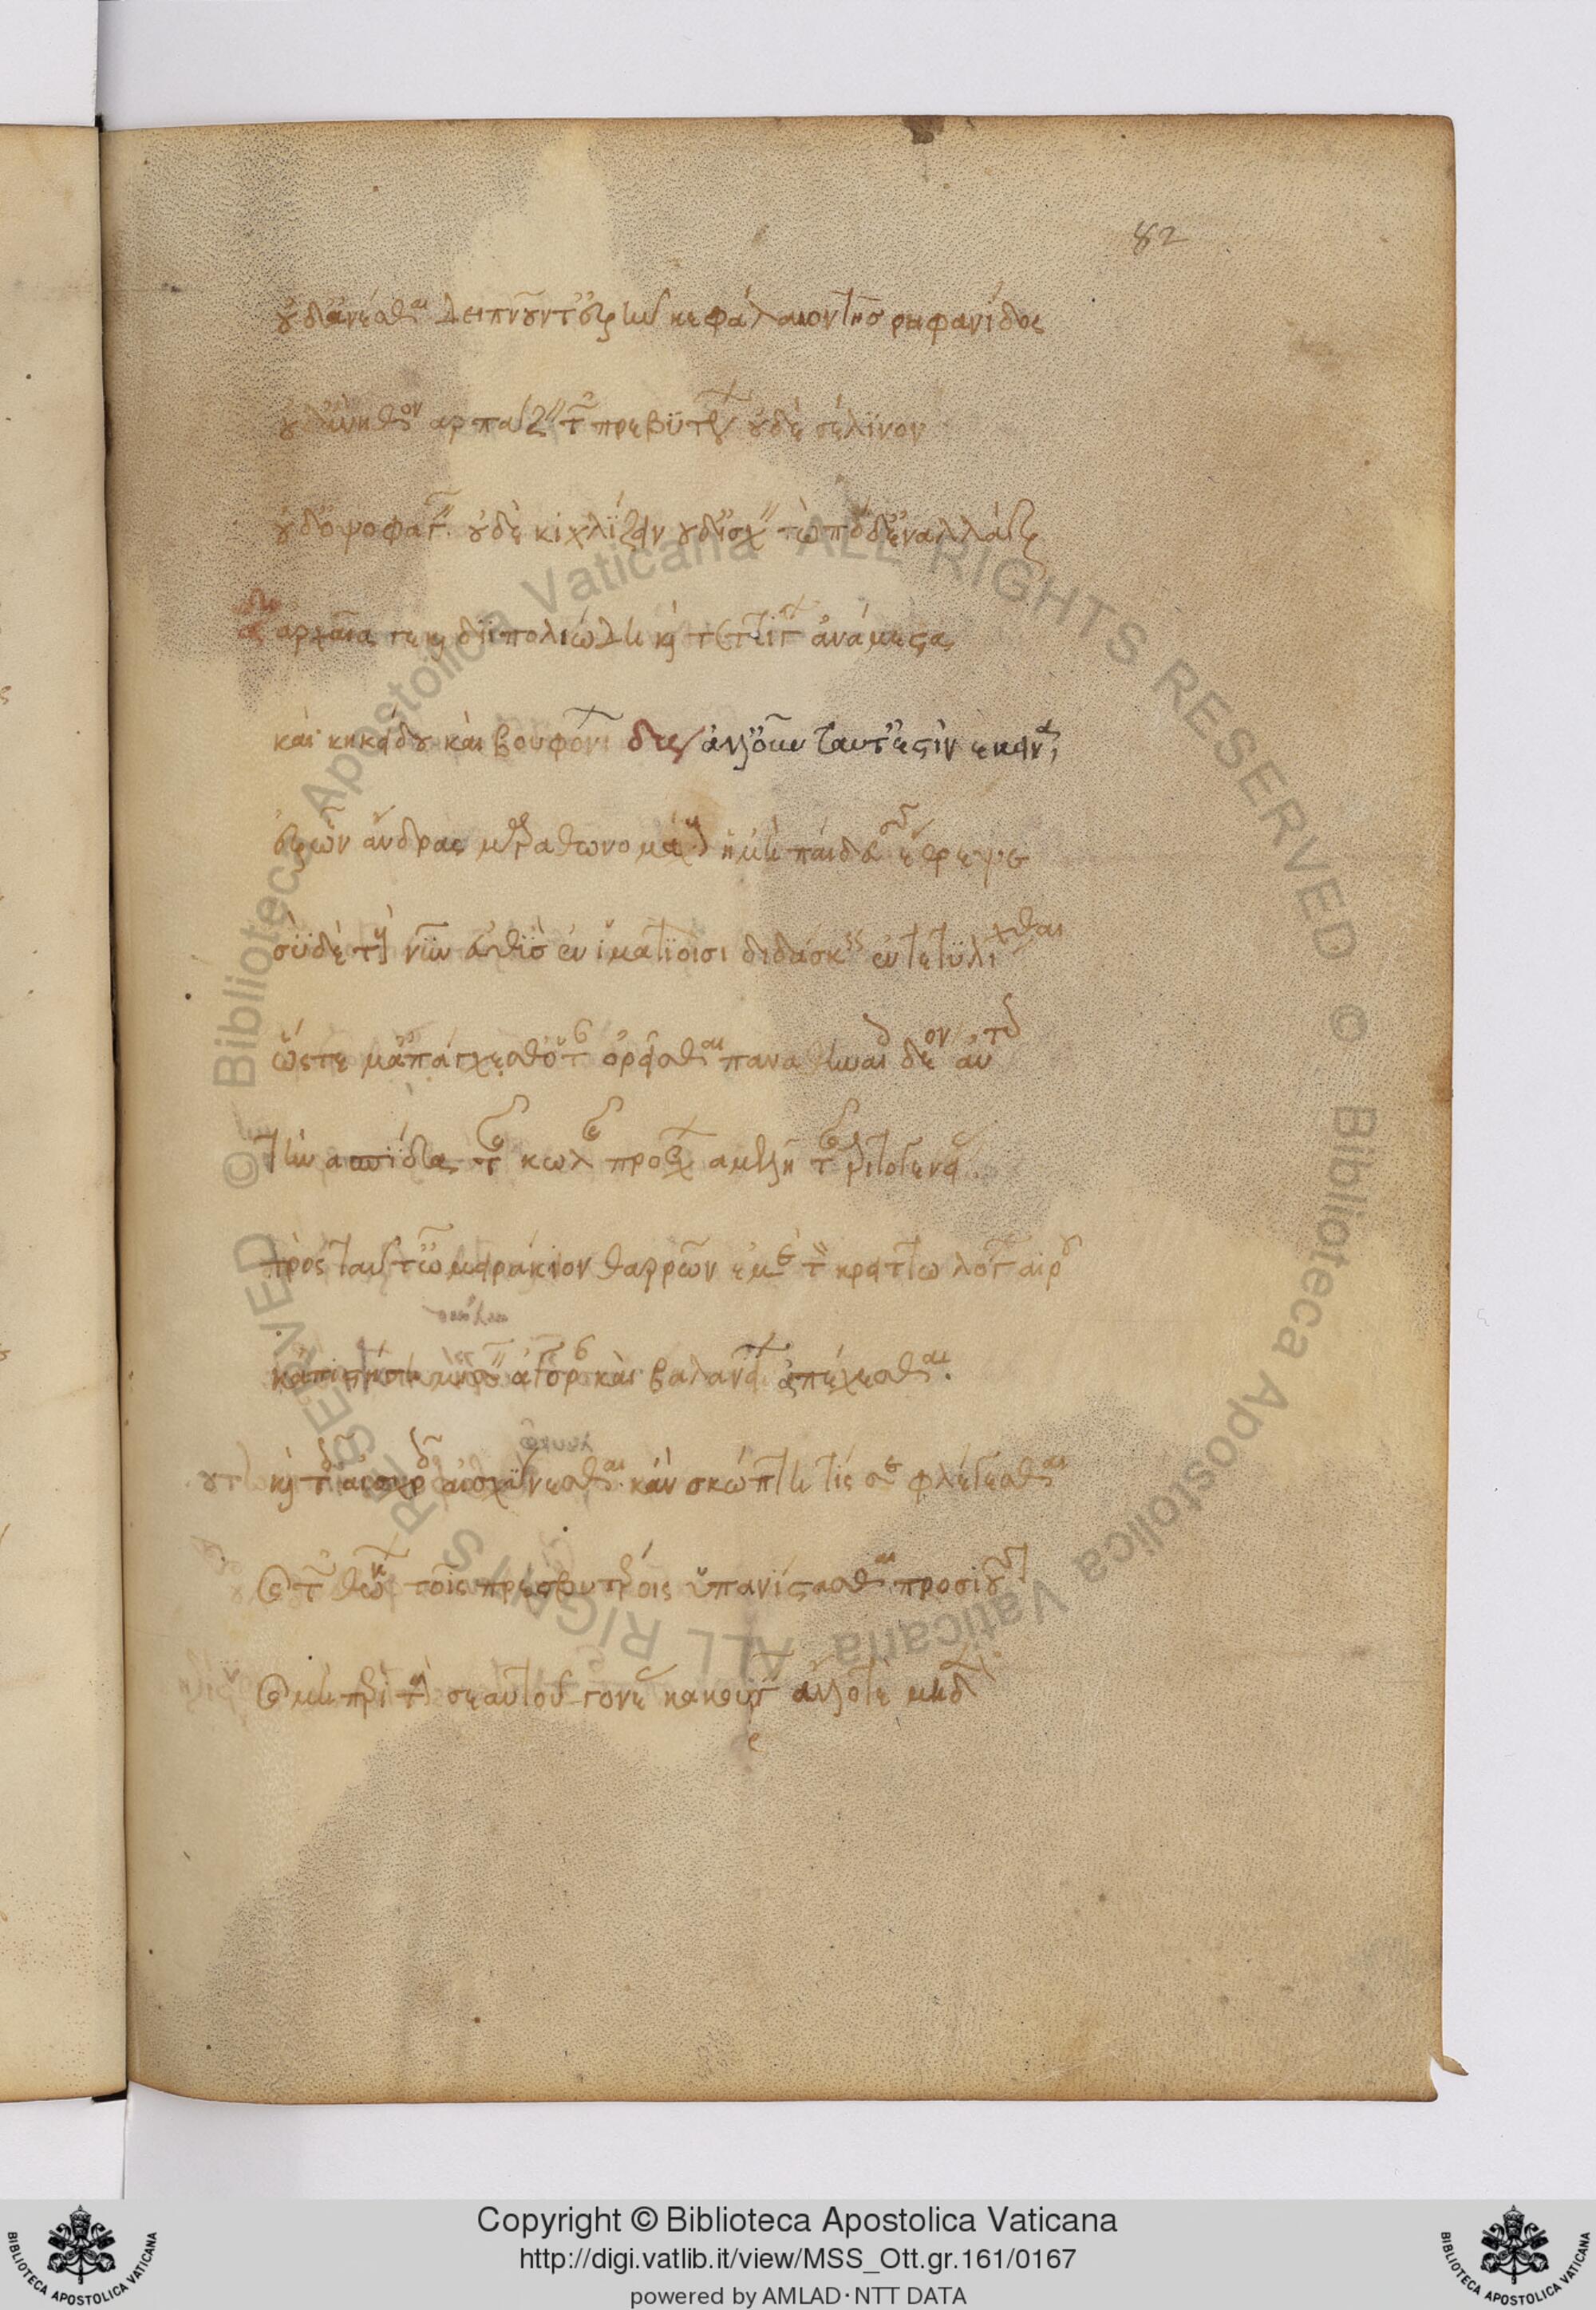 82
οὐδ' ἀνελέσθαι δειπνοῦντ' ἐξῆν κεφάλαιον τῆς ῥαφανίδος
οὐδ' ἄνηθον ἁρπάζειν τῶν πρεσβυτέρων οὐδὲ σέλινον
οὐδ' ὀψοφαγεῖν οὐδὲ κιχλίζειν οὐδ' ἴσχειν τὼ πόδ' ἐναλλάξ
ἀρχαῖα γε καὶ διιπολιώδη καὶ τεττίγων ἀνάμεστα
καὶ κηκείδου καὶ βουφονίων ἀλλ' οὖν ταῦτ' ἐστὶν ἐκεῖνα
ἐξ ὧν ἄνδρας μαραθωνομάχους ἡμὴ παίδευσις ἔθρεψε
σὺ δὲ τοὺς νῦν εὐθὺς ἐν ἱματίοισι διδάσκεις ἐντετυλίχθαι
ὥστε μ' ἀπάγχεσθ' ὅταν ὀρχεῖσθαι παναθηναίοις δέον αὐτούς
τὴν ἀσπίδα τῆς κωλῆς προέχων ἀμελῇ τῆς τριτογενείας
πρὸς ταῦτ' ὦ μειράκιον θαρρῶν ἐμὲ τὸν κρείττω λόγον αἱροῦ
κἀπιστήσῃ μισεῖν ἀγορὰν καὶ βαλανείων ἀπέχεσθαι
καὶ τοῖς αἰσχροῖς αἰσχύνεσθαι κἂν σκώπτῃ τίς σε φλέγεσθαι
καὶ τῶν θάκων τοῖς πρεσβυτέροις ὑπανίστασθαι προσιοῦσι
καὶ μὴ περὶ τοὺς σεαυτοῦ γονέας σκαιουργεῖν ἄλλο τε μηδὲν
Copyright © Biblioteca Apostolica Vaticana
http://digi.vatlib.it/view/MSS_Ott.gr.161/0167
powered by AMLAD·NTT DATA
BIBLIOTECA APOSTOLICA VATICANA
BIBLIOTECA APOSTOLICA VATICANA
© Biblioteca Apostolica Vaticana ALL RIGHTS RESERVED
© Biblioteca Apostolica Vaticana ALL RIGHTS RESERVED